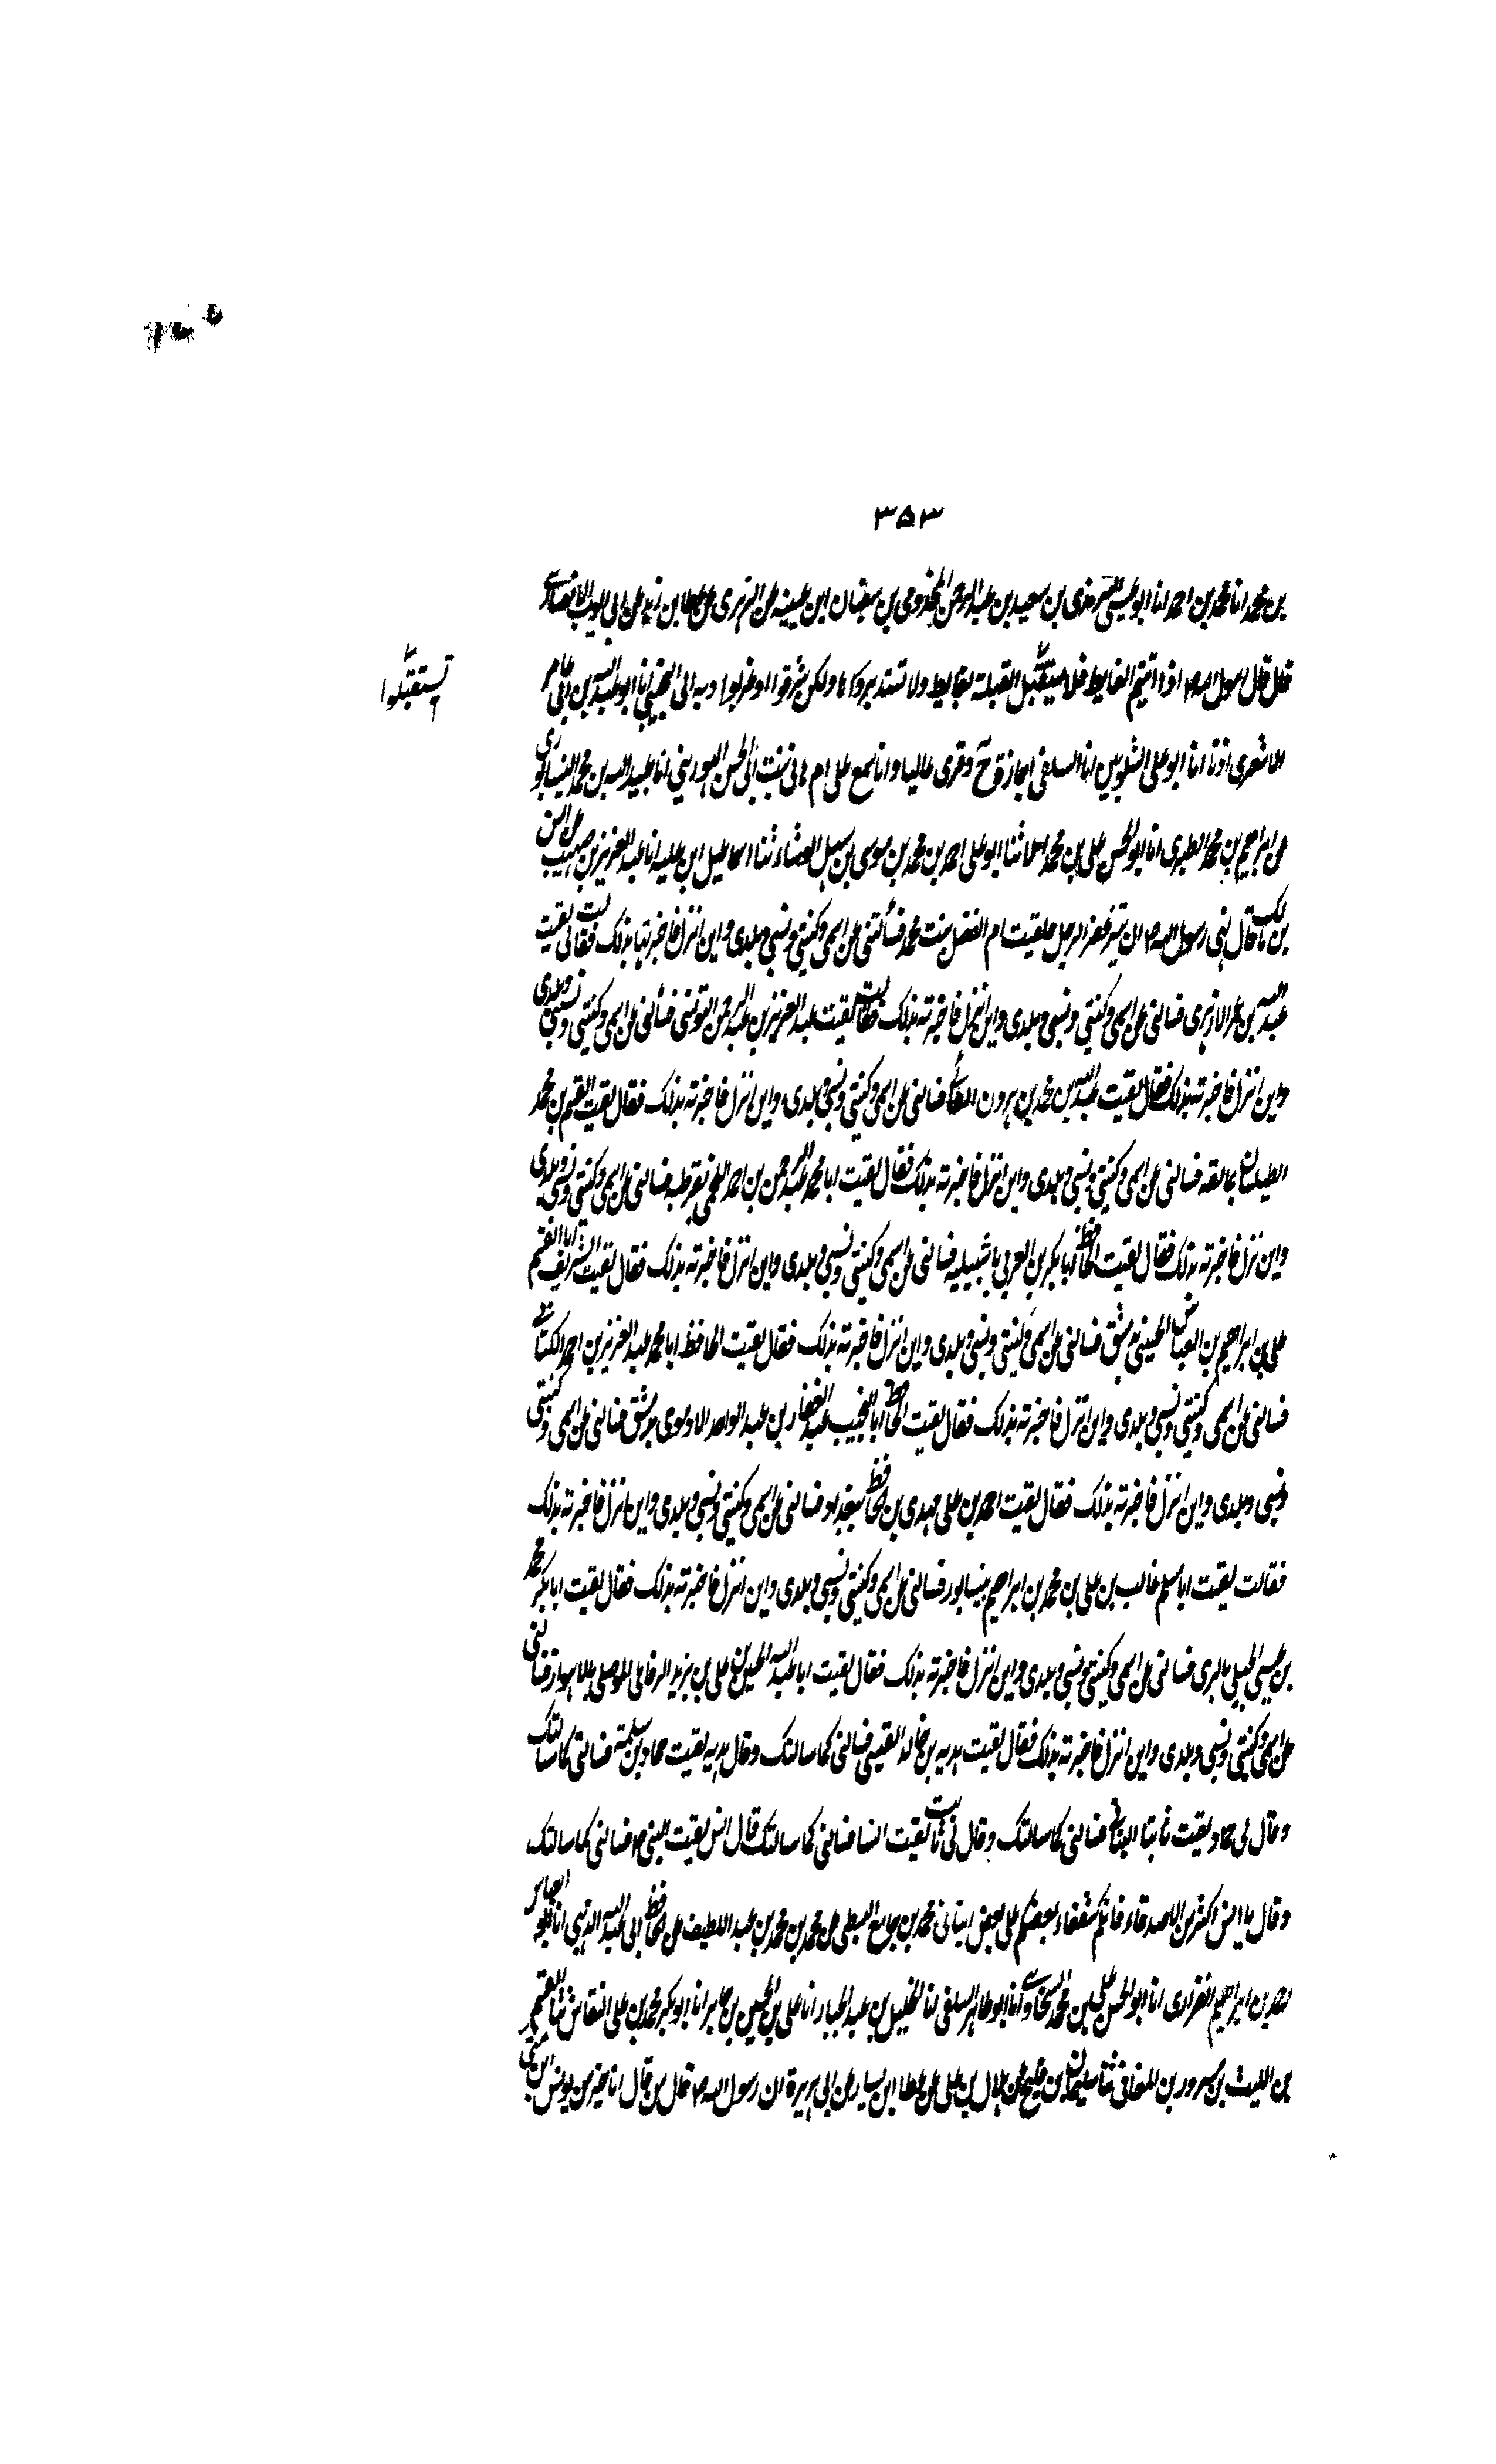 ٣٥٣
بن محمد انا محمد بن احمد انا ابو عيسى الترمذى بن سعيد بن عبد الرحمن المخذومى بن سفيان ابن عيينه عن الزهرى عن عطا بن زيد عن ابى ايوب الانصارى
قال قال رسول الله ص اذا اتيتم الغايط فلا يستقبل القبلة بغايط ولا تستدبروكا ولكن شرقوا او غربوا وبه الى انا ابو عبد الله بن ابى عامر
تستقبلوا
الاشعرى اذنا انا ابو على الشلوبين انا السلفى اجازة ح وقرى عاليا وانا اسمع على ام هانى بنت ابى الحسن الهورينى انا عبيد الله بن محمد النيسابورى
عن ابراهيم بن محمد الطبرى انا ابو الحسن على بن محمد املا ثنا ابو على احمد بن محمد بن موسى بن سهل العشاء ثنا اسماعيل ابن عليه انا عبد العزيز بن صهيب عن انس
بن مالك قال نهى رسول الله ص ان يتزعفر الرجل ملقيت ام الفضل بنت محمد فسألتنى عن اسمى وكنيتى ونسبى وبلدى واين انزل فاخبرتها بذلك فقالت لى لقيت
عبد الله بن عمر الازهرى فسالنى عن اسمى وكنيتى ونسبى وبلدى واين انزل فاخبرته بذلك فقال لقيت عبد العزيز بن عبد الرحمن التونسى فسألنى عن اسمى وكنيتى ونسبى وبلدى
واين انزل فاخبرته بذلك فقال لقيت عبد الله بن محمد بن هرون الطائى فسالنى عن اسمى وكنيتى ونسبى وبلدى واين انزل فاخبرته بذلك فقال لقيت القسم بن محمد
الطيلسان بمالقه فسالنى عن اسمى وكنيتى ونسبى وبلدى واين انزل فاخبرته بذلك فقال لقيت ابا محمد عبد الرحمن بن احمد بقرطبه فسالنى عن اسمى وكنيتى ونسبى وبلدى
واين نزل فاخبرته بذلك فقال لقيت الحافظ ابا بكر بن العربى باشبيليه فسالنى عن اسمى وكنيتى ونسبى وبلدى واين انزل فاخبرته بذلك فقال لقيت الشريف ابا القسم
على بن ابراهيم بن العباس الحسينى بدمشق فسالنى عن اسمى وكنيتى ونسبى وبلدى واين انزل فاخبرته بذلك فقال لقيت الحافظ ابا محمد عبد العزيز بن احمد الكتانى
فسالنى عن اسمى وكنيتى ونسبى وبلدى واين انزل فاخبرته بذلك فقال لقيت الحافظ ابا النجيب عبد الغفار بن عبد الواحد الاوموى بدمشق فسالنى عن اسمى وكنيتى
ونسبى وبلدى واين انزل فاخبرته بذلك فقال لقيت احمد بن على مهدى بن الحافظ ببغداد فسالنى عن اسمى وكنيتى ونسبى وبلدى واين انزل فاخبرته بذلك
فقالت لقيت ابا سلم غالب بن على بن محمد بن ابراهيم بنيسابور فسالنى عن اسمى وكنيتى ونسبى وبلدى واين انزل فاخبرته بذلك فقال لقيت ابا بكر محمد
بن عيسى الجبلى بالرى فسالنى عن اسمى وكنيتى ونسبى وبلدى واين انزل فاخبرته بذلك فقال لقيت ابا عبد الله الحسين بن على بن يزيد الرفاعى الموصلى بالاهواز فسالنى
عن اسمى وكنيتى ونسبى وبلدى واين انزل فاخبرته بذلك فقال لقيت هدبه بن خالد القيسى فسالنى كما سالتك وقال هدبه لقيت حماد بن سلمة فسالنى كما سالتك
وقال لى حماد لقيت ثابتا البنانى فسالنى كما سالتك وقال لى ثابت لقيت انسا فسالنى كما سالتك قال انس لقيت النبى ص فسالنى كما سالتك
وقال يا انس اكثر من الاصدقاء فانكم شفعاء بعضكم على بعض انبانى محمد بن جامع البسطى عن محمد بن محمد بن عبد اللطيف عن الحافظ ابى عبد الله الذهبى انا ابو العباس
احمد بن ابراهيم الفزارى انا ابو الحسن على بن محمد السخاوى انا ابو طاهر السلفى انا الخليل بن عبد الجبار انا على بن الحسين بن جابر انا ابو بكر محمد بن على النقاش ثنا القسم
بن الليث بن مسرور بن المعافى ثنا سليمان بن فليح عن هلال بن على عن عطا ابن يسار عن ابى هريرة ان رسول الله ص قال من قال انا خير من يونس ابن متى